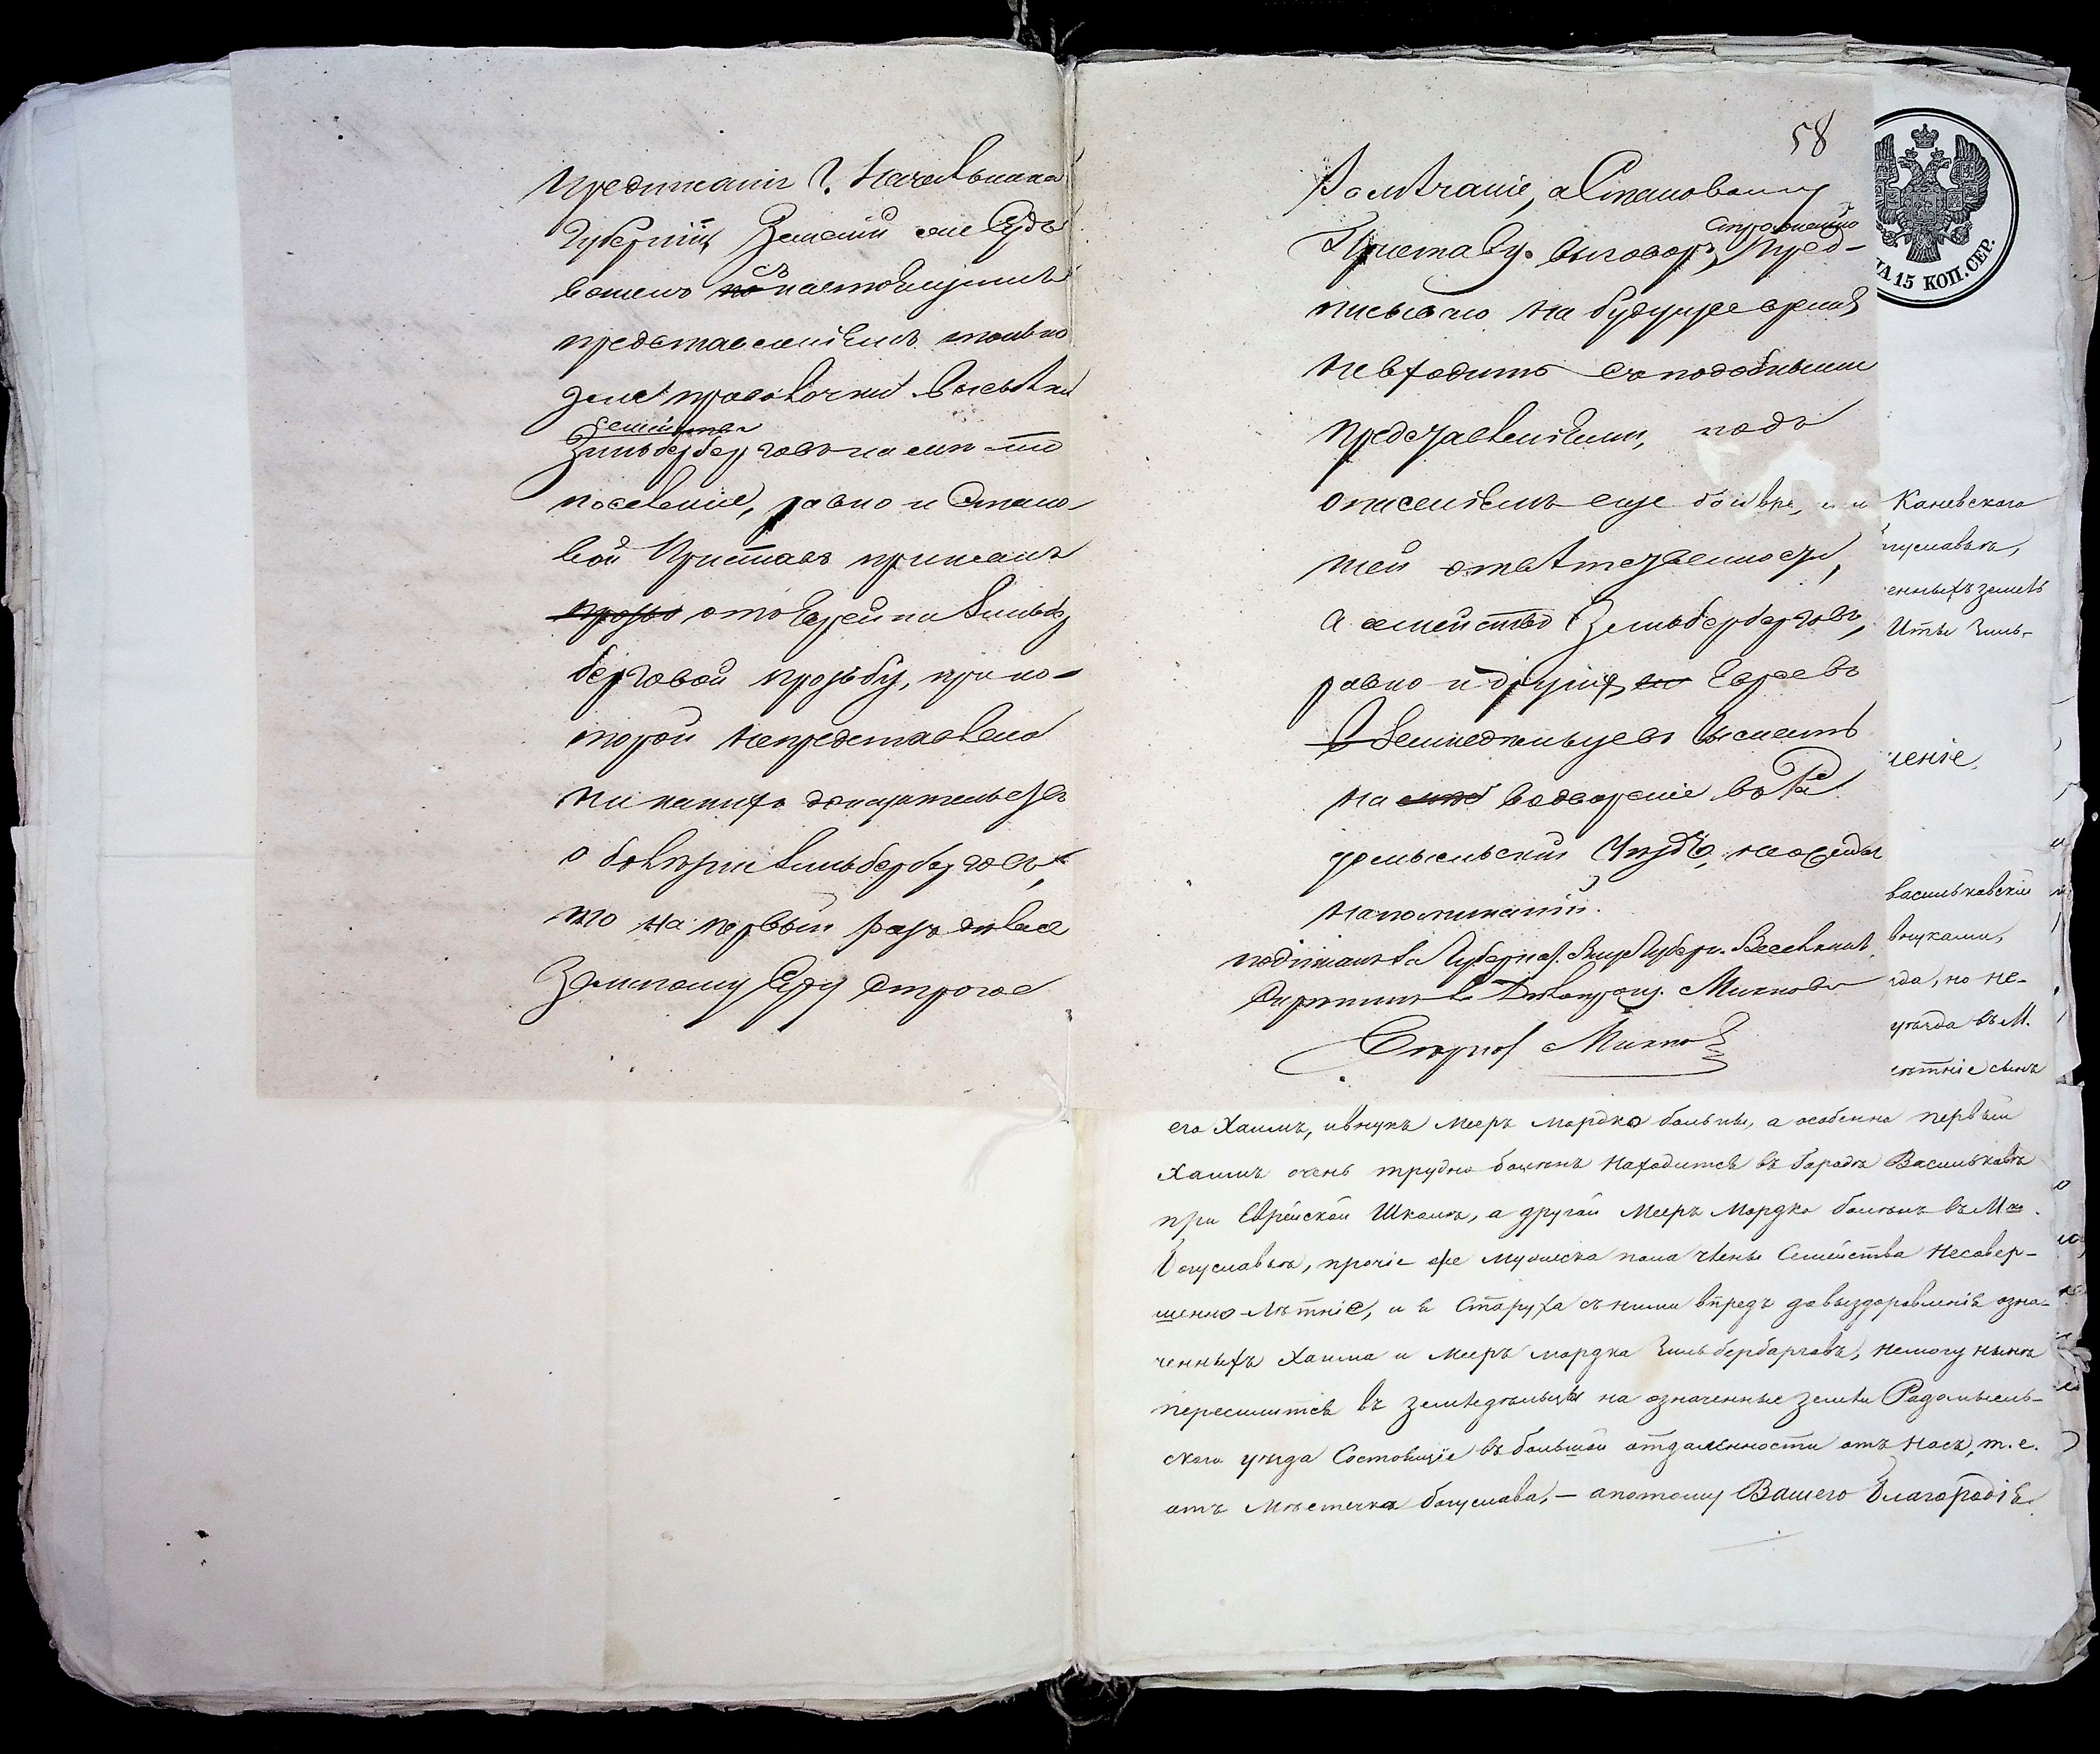 предписанію Г. Начальника
Губерніи, Земскій
вошелъ съ настоящимъ
представленіемъ только
для проволочки высылки
семейства
Зильбербергов на
поселеніе, равно и Стано-
вой Приставъ принялъ
отъ Еврейки Зильбер
берговой прозьбу, при ко-
торой не представлено
никакихъ доказательствъ
о болѣзни Зильберберговъ,
то на первый разъ дѣлаю
Земскому Суду строгое
58
Замѣчаніе, а Становому
Приставу выговоръ, Пред-
писываю на будущее время
не входить съ подобными
представленіями, подъ
опасеніемъ еще
шей отвѣтственности,
а семейство Зильберберговъ,
равно и другихъ Евреевъ
Земледѣльцевъ выслать
на водвореніе въ Ра
домысльскій Уѣздъ, не ожидая
напоминаній.
подписалъ За Губернат. Вице Губерн. Веселкинъ
Скрѣпилъ Дѣлопроиз. Михновъ
Михно
НА 15 КОП. СЕР.
Каневского
гуславѣ,
енныхъ земль
Иты Зиль-
ленiе.
васильковскій
внуками,
да, но не-
уѣзда въ М.
лѣтніе сынъ
его Хаимъ, и внукъ Мееръ Мордко больны, а особенно первый
Хаимъ очень трудно боленъ находится въ Городѣ Васильковѣ
при Еврейской Школѣ, а другой Мееръ Мордко боленъ въ М.
Богуславѣ, прочіе же мужеска пола члены Семейства несовер-
шенно-лѣтніе, и я Старуха съ ними впредъ до выздоровленія озна-
ченныхъ Хаима и Мееръ Мордка Зильбербарговъ, немогу нынѣ
переселится въ земледѣльцы на означенные земли Радомысль-
ского уѣзда Состоящіе въ большой отдаленности отъ насъ, т. е.
отъ Мѣстечка Богуслава, — а потому Вашего Благородія